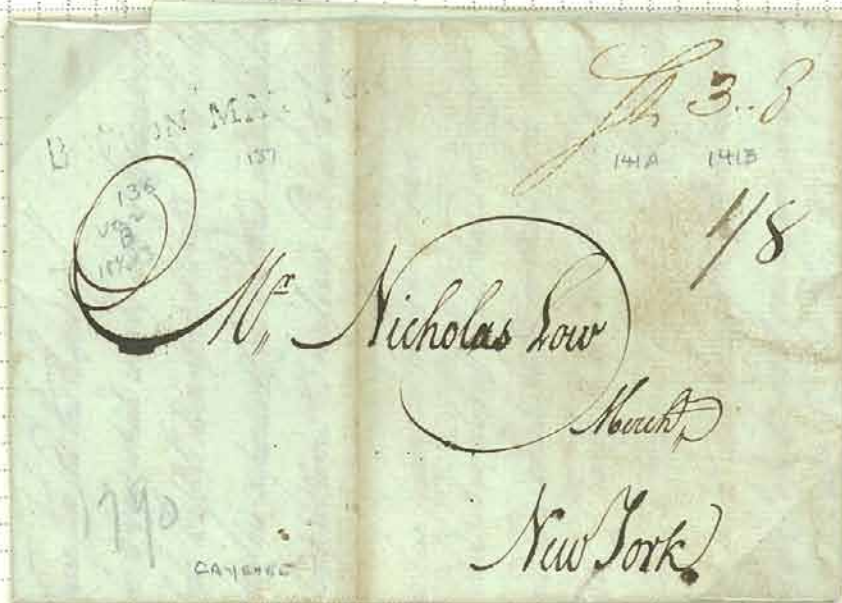 Sh 3..8
BOSTON MAY
137
141A 141B
136
1/8
Mr. Nicholas Low
Mercht
New York
1790
CAYENNE